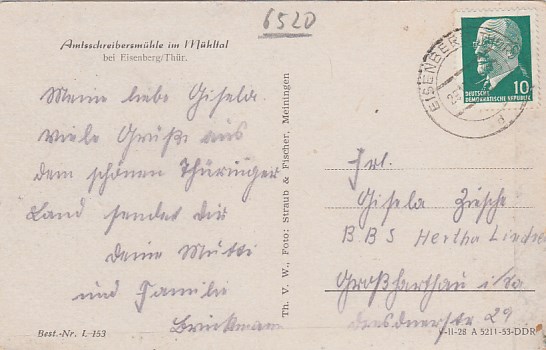 6520
Amtsschreibersmühle im Mühltal
bei Eisenberg/Thür.
Meine liebe Gisela.
Viele Grüße aus
dem schönen Thüringer
Land sendet Dir
Deine Mutti
und Familie
Brinkmann
Best.-Nr. I. 153
Th. V. W., Foto: Straub & Fischer, Meiningen
EISENBERG
10
DEUTSCHE
DEMOKRATISCHE REPUBLIK
Frl.
Gisela Ziesche
BBS Hertha Lindner
Großharthau i/Sa
Dresdnerstr 29
V-11-28 A 5211-53-DDR